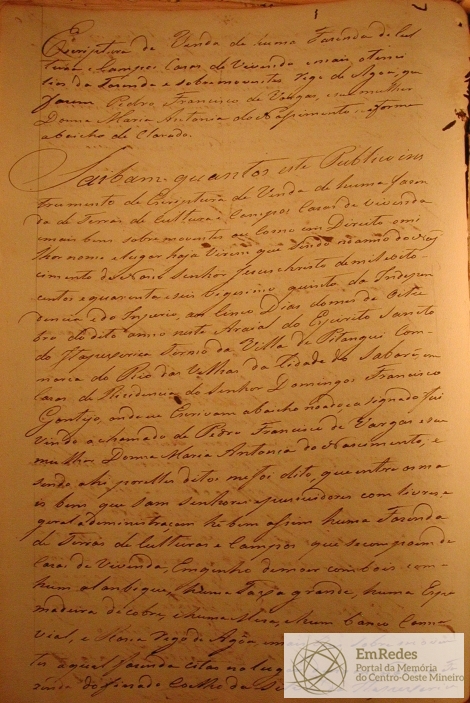 Escriptura de Venda de huma Fazenda de Cul
turas e Campos Casas de Vivenda e mais
da Fazenda e sobre moventes Rego de Agoa, que
fazem Pedro Francisco de Vargas, e sua mulher
Donna Maria Antonia do Nassemento e a forma
abaicho de Clarado.
Saibam quantos este Publico ins
trumento de Escriptura de Venda de huma Fazen
da de Terras de Cultura e Campos Casas de vivenda
e mais bens sobre moventes ou como em Direito mi
lhor nome e lugar haja Virem que Sendo no anno do Nas
cimento de Nosso Senhor Jesus christo de mil e oito
centos e quarenta e seis Vegesimo quinto da Indepen
dencia e do Imperio, aos Cinco Dias do mes de Outu
bro do dito anno neste Araial do Espirito Santo
do Itapesserica Termo da Villa de Pitangui Com
marca do Rio das Velhas da Cidade do Sabará, em
Casas de Rezidencia do Senhor Domingos Francisco
Gontejo, onde eu Escrivam abaicho
vindo a chamado de Pedro Francisco de Vargas e sua
mulher Donna Maria Antonia do Nascimento, e
sendo ahi por elles ditos me foi dito, que entre os ma
is bens que sam senhores e pucuidores com livre e
geral adeministracam he bem assim huma Fazenda
de Terras de Culturas e Campos que se compoem de
Casas de Vivenda, Emgenho de moer com bois com
hum alambique, huma Taxa grande, huma Espu
madeira de cobre, e huma Mesa, e hum banco
e Mais Rego de Agoa,
aquel fazenda citas no lugar
do finado Coelho da
EmRedes
Portal da Memória
do Centro-Oeste Mineiro